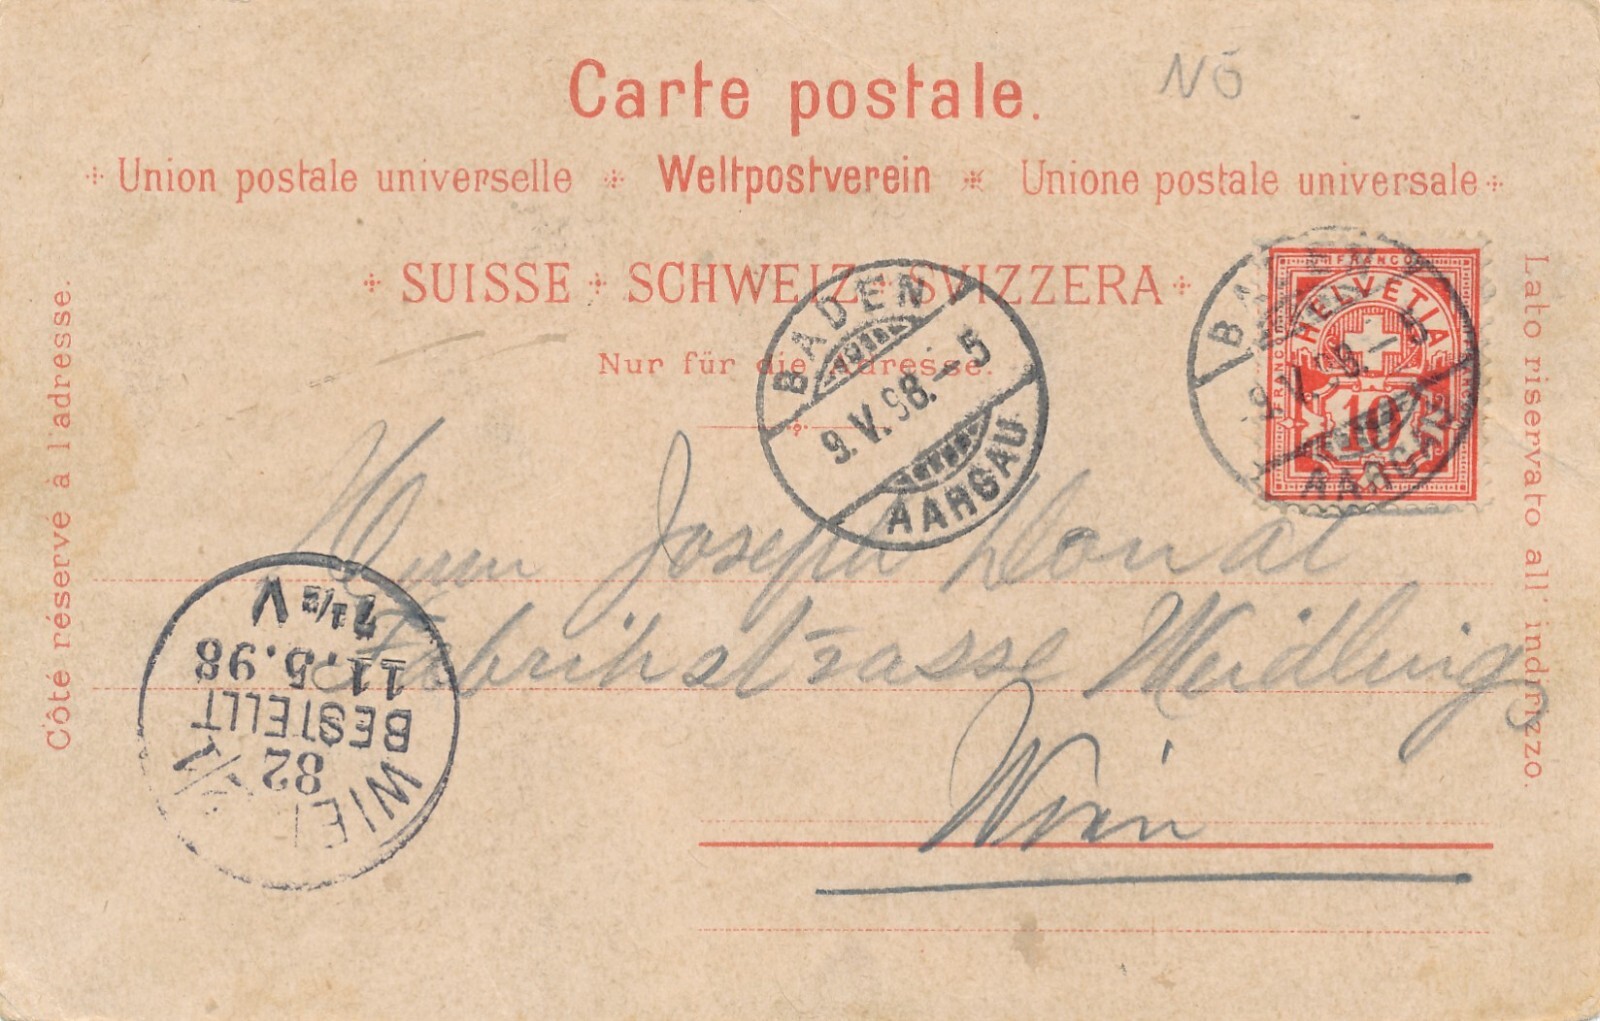 NÖ
Carte postale.
Union postale universelle * Weltpostverein * Unione postale universale
SUISSE + SCHWEIZ + SVIZZERA
Nur für die Adresse.
Côté réservé à l'adresse.
Lato riservato all' indirizzo.
BADEN
9.V.98.–5
AARGAU
BADEN
9.V.98.–5
AARGAU
FRANCO
HELVETIA
FRANCO
FRANCO
10
Herrn Joseph Donat
Fabrikstrasse Meidling
Wien
WIEN
82
BESTELLT
11.5.98
7 1/2 V